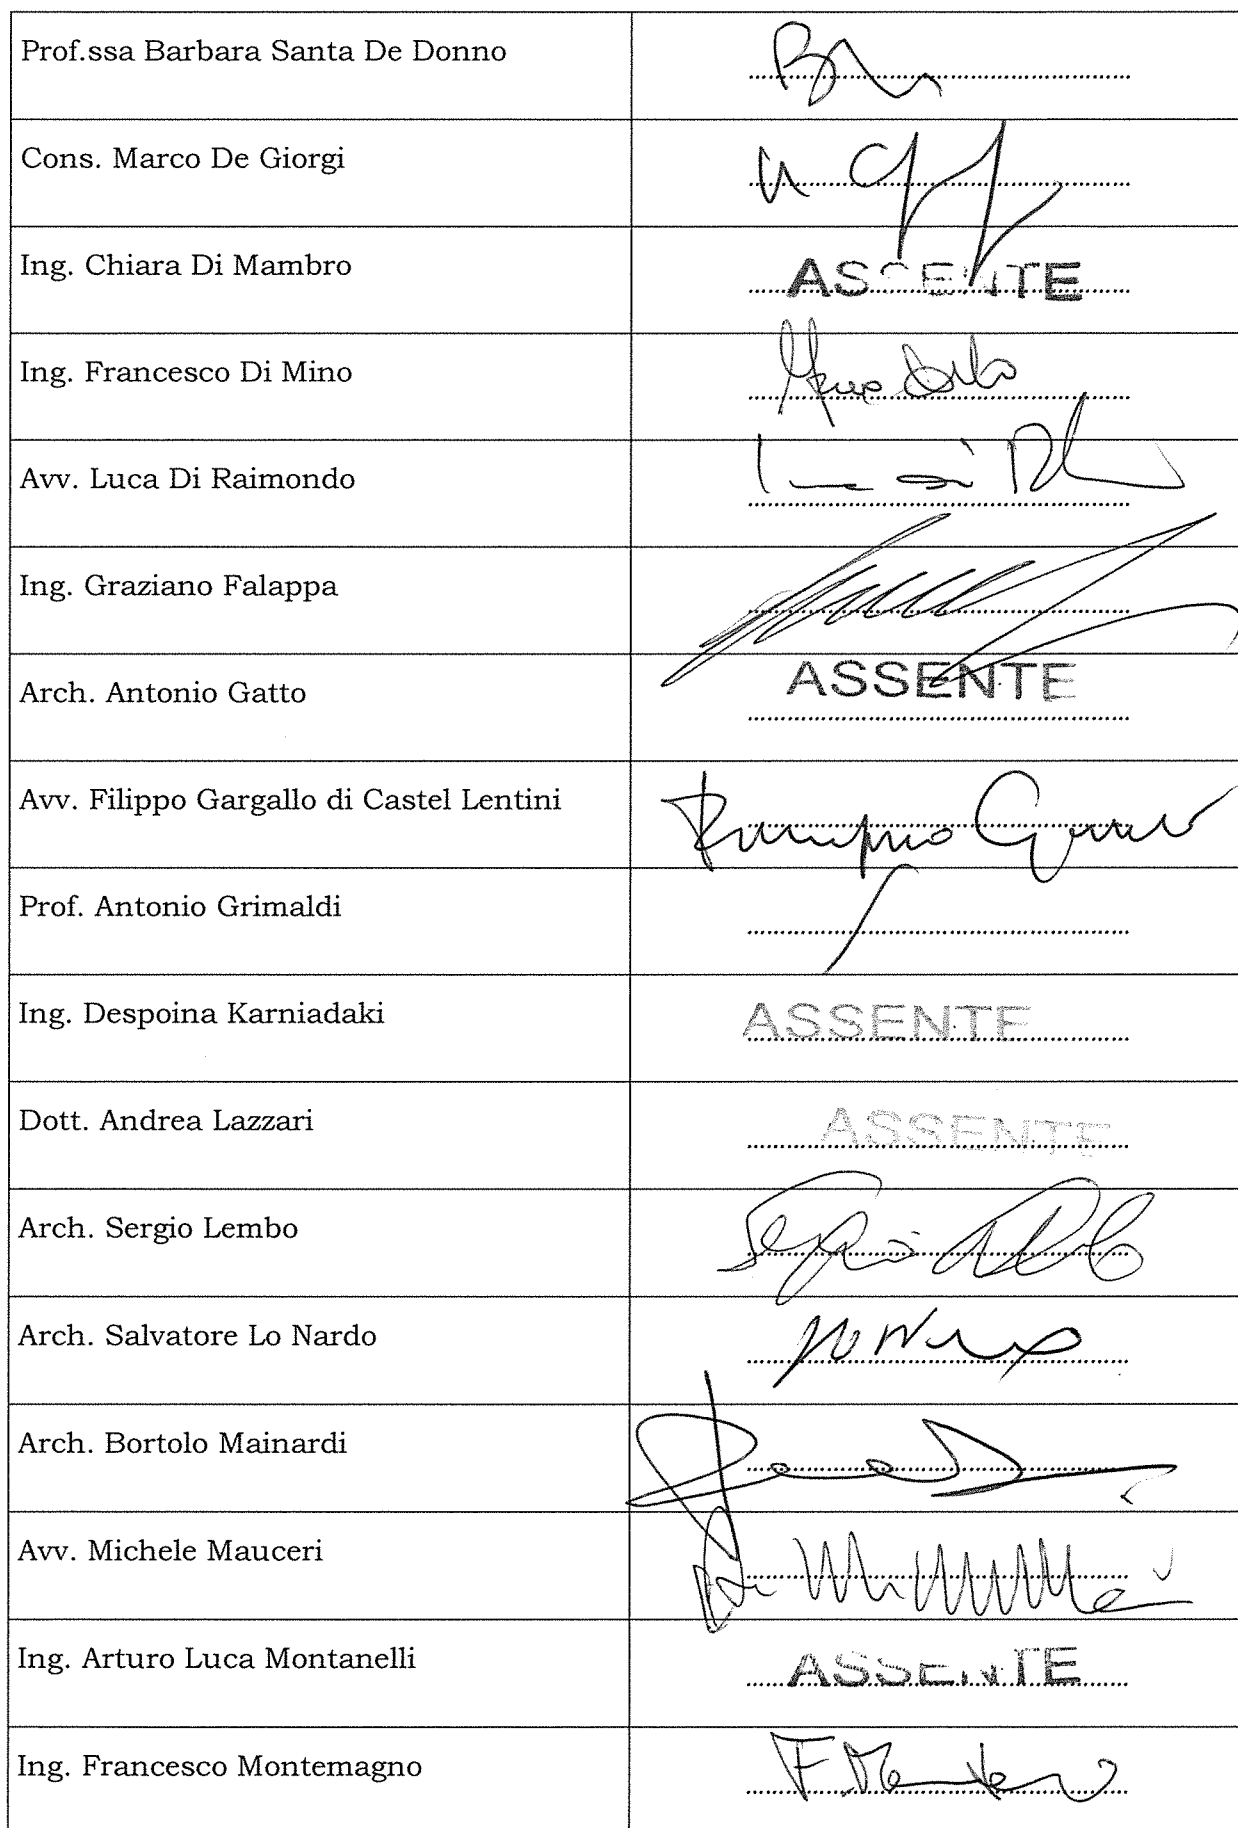 Prof.ssa Barbara Santa De Donno
Cons. Marco De Giorgi
Ing. Chiara Di Mambro
ASSENTE
Ing. Francesco Di Mino
Avv. Luca Di Raimondo
Ing. Graziano Falappa
Arch. Antonio Gatto
ASSENTE
Avv. Filippo Gargallo di Castel Lentini
Prof. Antonio Grimaldi
Ing. Despoina Karniadaki
ASSENTE
Dott. Andrea Lazzari
ASSENTE
Arch. Sergio Lembo
Arch. Salvatore Lo Nardo
Arch. Bortolo Mainardi
Avv. Michele Mauceri
Ing. Arturo Luca Montanelli
ASSENTE
Ing. Francesco Montemagno